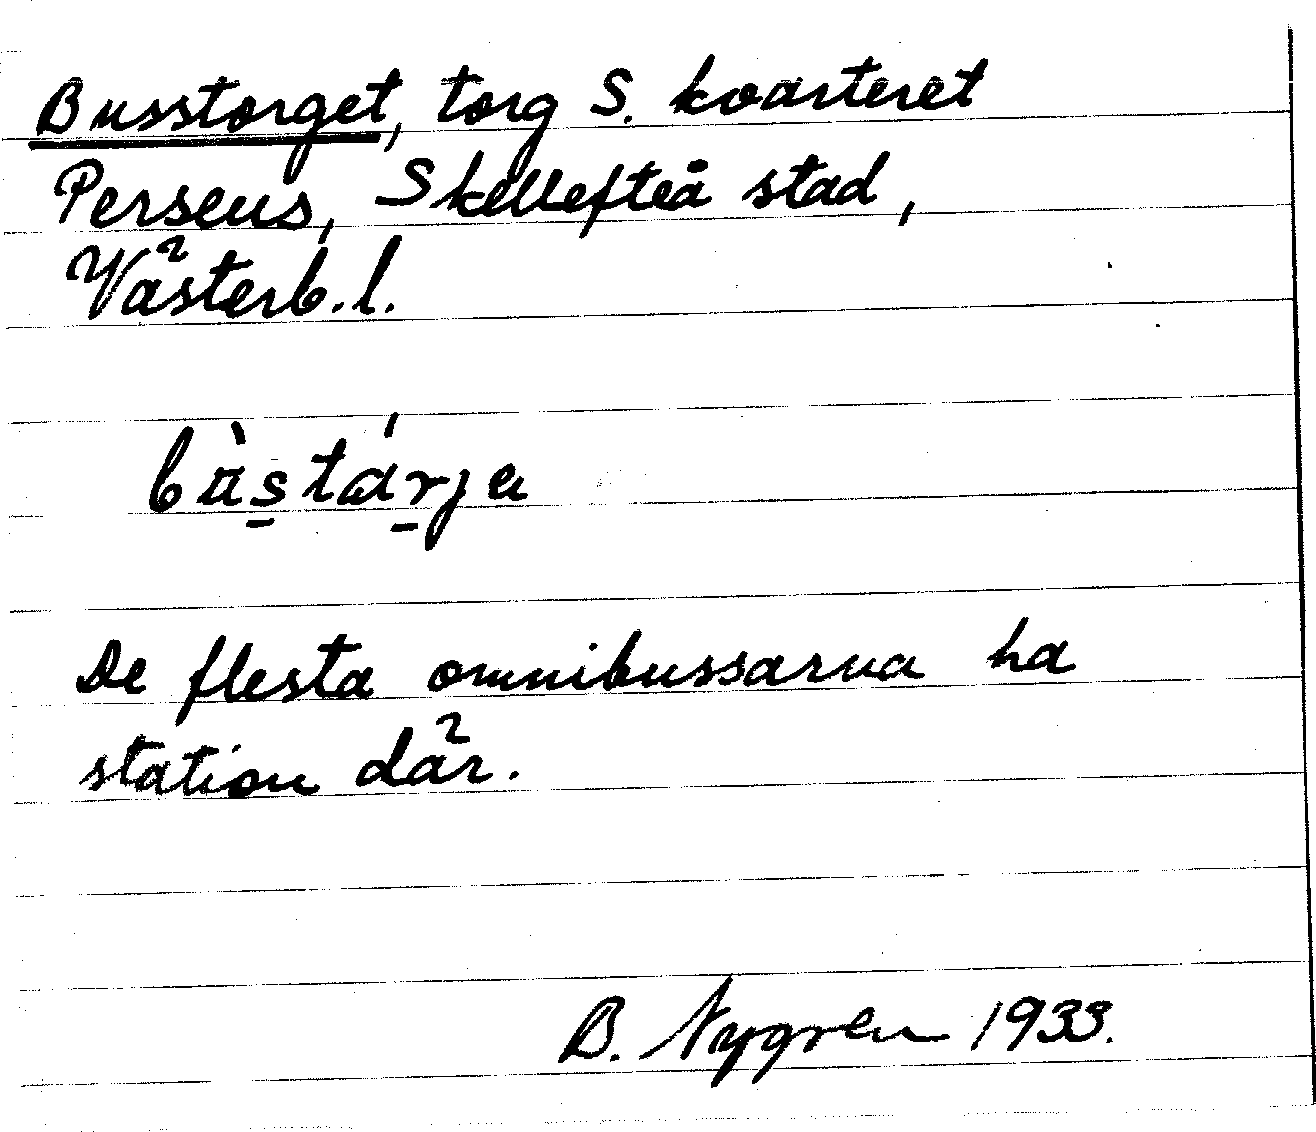 Busstorget, torg S. kvarteret
Perseus, Skellefteå stad,
Västerb. l.
De flesta omnibussarna ha
station där.
B. Nygren 1933.